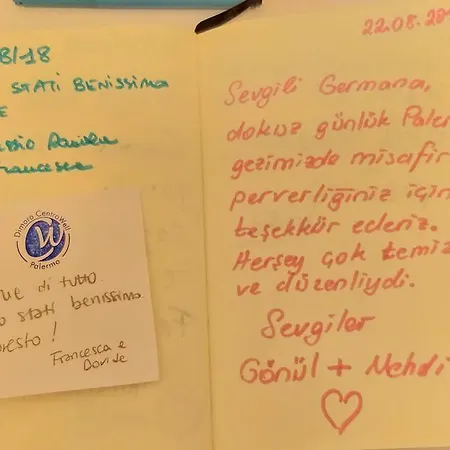 8/18
STATI BENISSIMO
E
Francesca
Dimora CentroWell
Palermo
di tutto.
stati benissimo
presto!
Francesca e
Davide
22.08.20
Sevgili Germana,
dokuz günlük Paler
gezimizde misafir
perverliğiniz için
teşekkür ederiz.
Herşey çok temiz
ve düzenliydi.
Sevgiler
Gönül + Mehdi